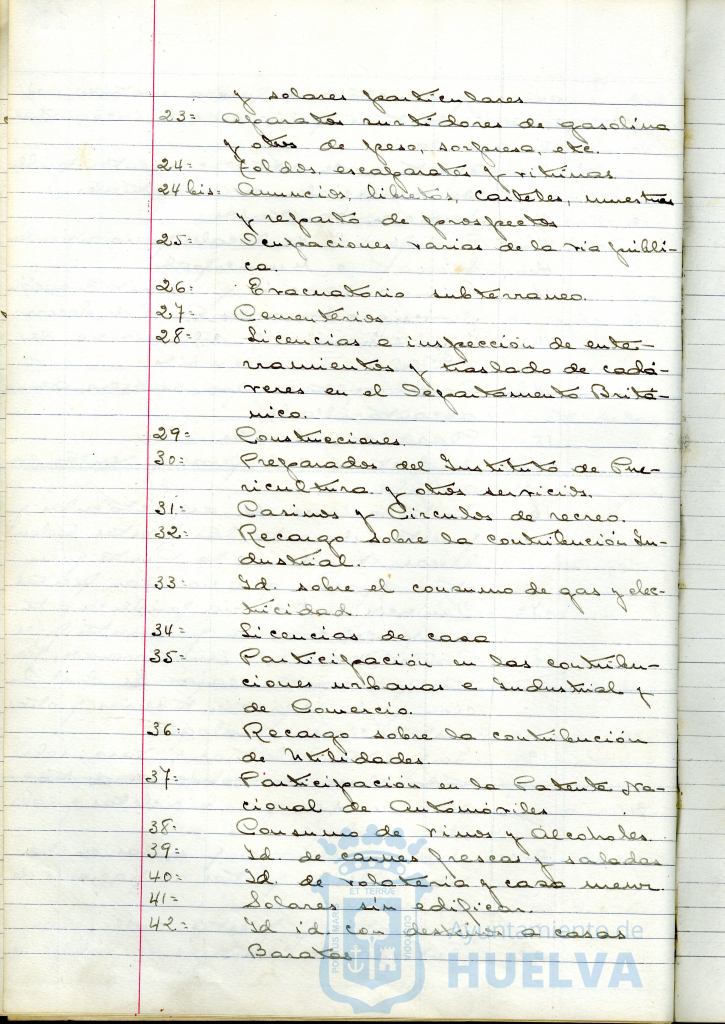 y solares particulares
23= Aparatos surtidores de gasolina
y otros de peso, sorpresa, etc.
24= Toldos, escaparates y vitrinas
24 bis= Anuncios, libretos, carteles, muestras
y reparto de prospectos
25= Ocupaciones varias de la via públi-
ca.
26= Evacuatorio subterraneo.
27= Cementerios
28= Licencias e inspección de ente-
rramientos y traslado de cadá-
veres en el Departamento Britá-
nico.
29= Construcciones.
30= Preparados del Instituto de Pue-
ricultura y otros servicios.
31= Casinos y Circulos de recreo.
32= Recargo sobre la contribución In-
dustrial.
33= Id. sobre el consumo de gas y elec-
tricidad
34= Licencias de caza
35= Participación en las contribu-
ciones urbanas e Industrial y
de Comercio.
36= Recargo sobre la contribución
de Utilidades
37= Participación en la Patente Na-
cional de Automóviles
38= Consumo de vinos y Alcoholes.
39= Id. de carnes frescas y saladas
40= Id. de volateria y caza menor
41= Solares sin edificar.
42= Id id con destino a casas
Baratas
ET TERRÆ
Ayuntamiento de
HUELVA